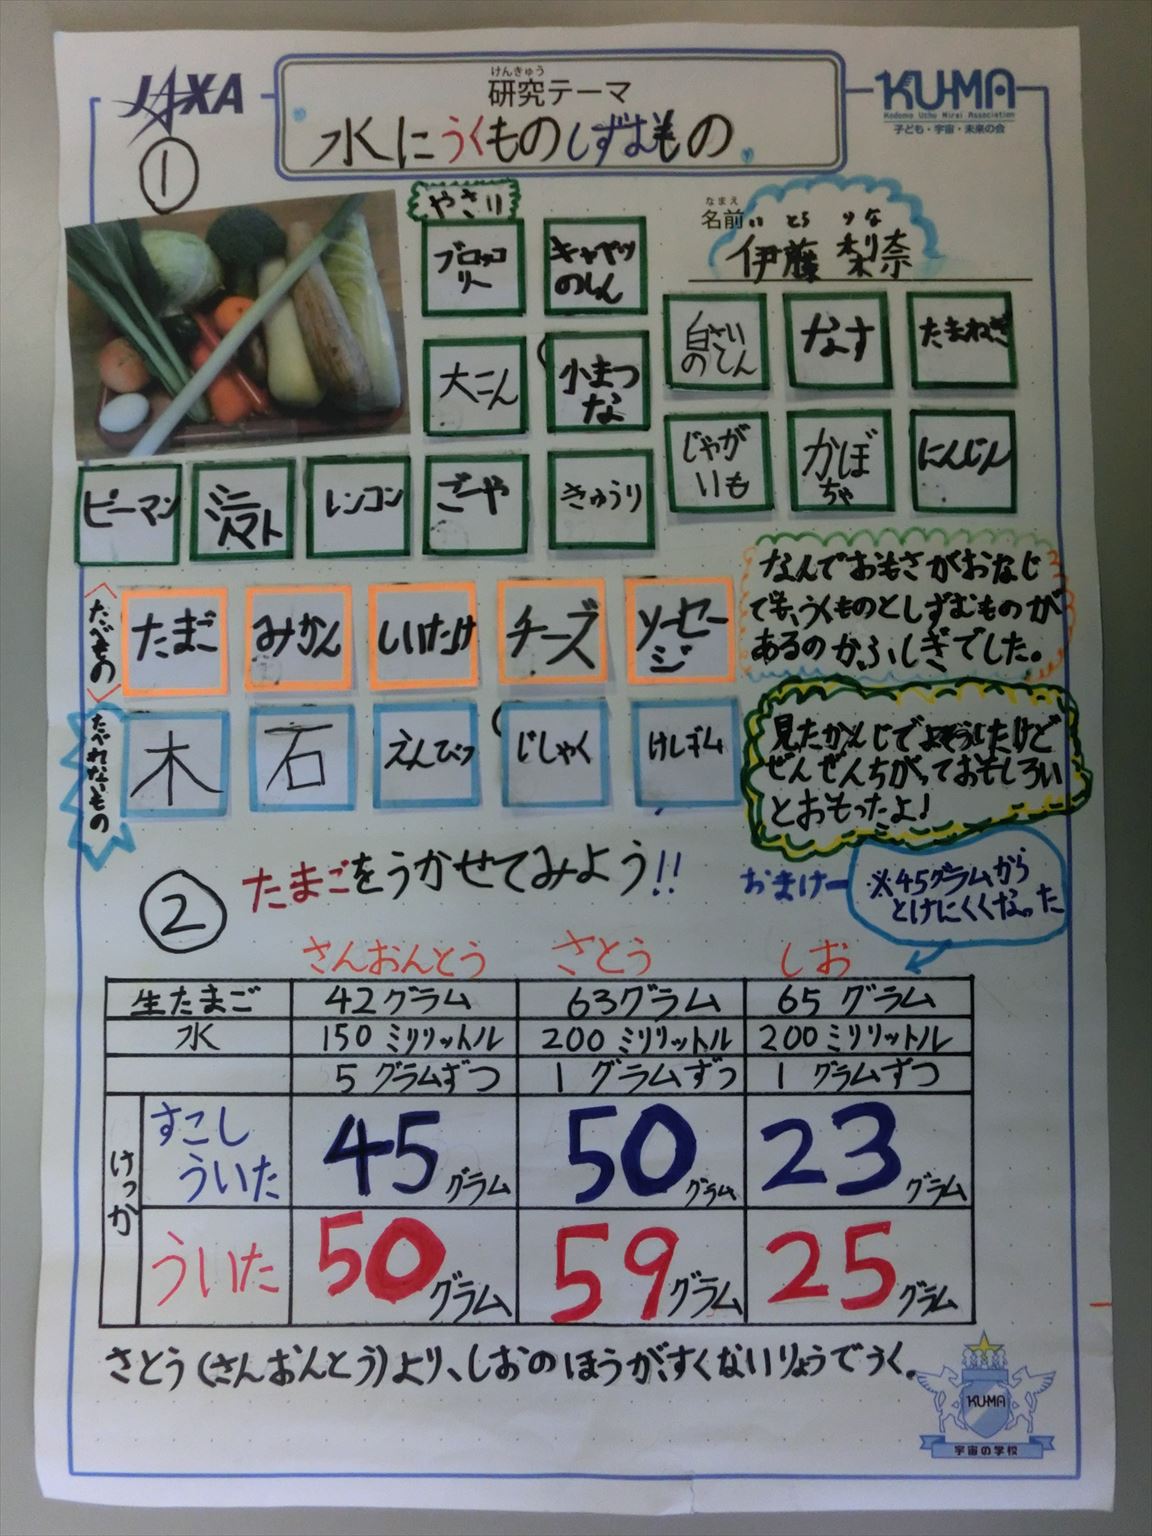 JAXA
けんきゅう
研究テーマ
水にうくものしずむもの
KU-MA
Kodomo Uchu Mirai Association
子ども・宇宙・未来の会
①
なまえ
名前
いとう りな
伊藤 梨奈
やさい
ブロッコ
リー
キャベツ
のしん
白さい
のしん
なす
たまねぎ
大こん
小まつ
な
じゃが
いも
かぼ
ちゃ
にんじん
ピーマン
ミニ
トマト
レンコン
ごーや
きゅうり
たべもの
たまご
みかん
しいたけ
チーズ
ソーセー
ジ
なんでおもさがおなじ
でも、うくものとしずむものが
あるのかふしぎでした。
たべれないもの
木
石
えんぴつ
じしゃく
けしゴム
見たかんじでよそうしたけど
ぜんぜんちがっておもしろい
とおもったよ!
② たまごをうかせてみよう!!
おまけー
※45グラムから
とけにくくなった
さんおんとう さとう しお
生たまご 42グラム 63グラム 65グラム
水 150ミリリットル 200ミリリットル 200ミリリットル
5グラムずつ 1グラムずつ 1グラムずつ
けっか
すこし
ういた
45グラム 50グラム 23グラム
ういた 50グラム 59グラム 25グラム
さとう(さんおんとう)より、しおのほうがすくないりょうでうく。
KU-MA
宇宙の学校